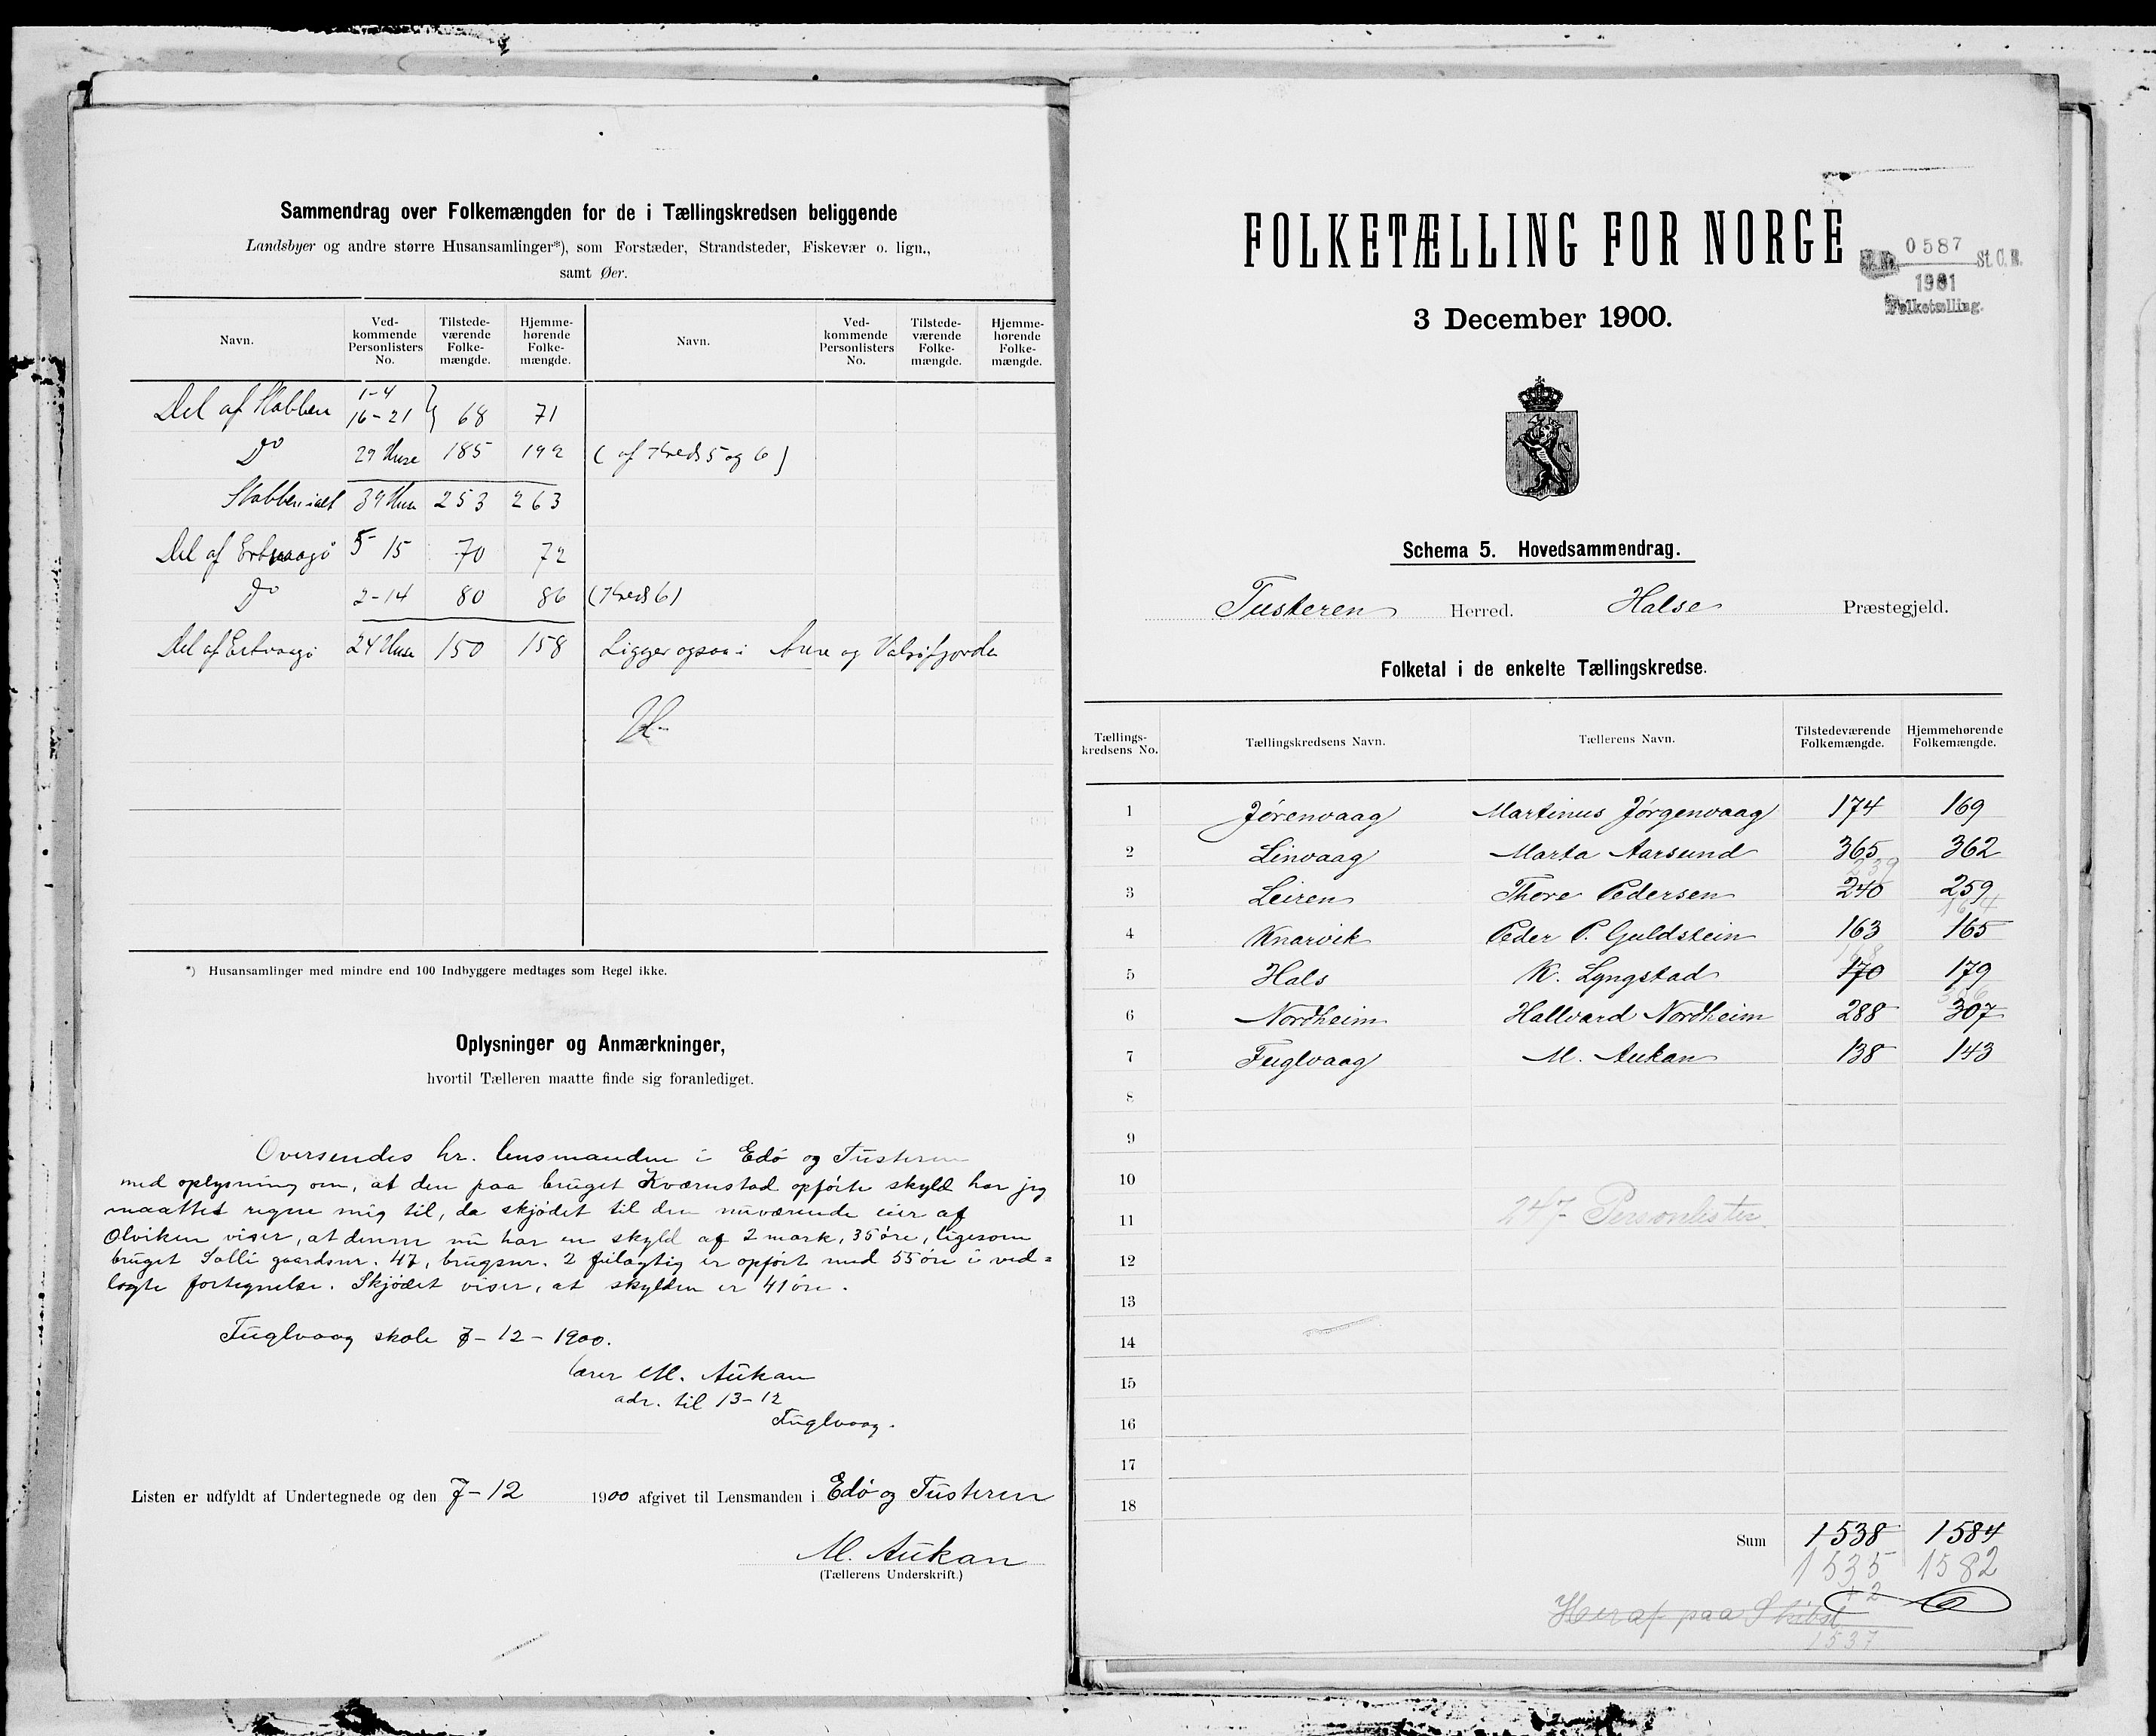 Sammendrag over Folkemængden for de i Tællingskredsen beliggende
Landsbyer og andre større Husansamlinger*), som Forstæder, Strandsteder, Fiskevær o. lign.,
samt Øer.
Navn. Ved-kommende Personlisters No. Tilstede-værende Folke-mængde. Hjemme-hørende Folke-mængde. Navn. Ved-kommende Personlisters No. Tilstede-værende Folke-mængde. Hjemme-hørende Folke-mængde.
Del af Stabben 1-4 16-21 } 68 71
Do 29 Huse 185 192 (af Kreds 5 og 6)
Stabben ialt 39 Huse 253 263
Del af Ertvaagø 5-15 70 72
Do 2-14 80 86 (Kreds 6)
Del af Ertvaagø 24 Huse 150 158 Ligger ogsaa i Aure og Valsøfjorden
*) Husansamlinger med mindre end 100 Indbyggere medtages som Regel ikke.
Oplysninger og Anmærkninger,
hvortil Tælleren maatte finde sig foranlediget.
Oversendes hr. lensmanden i Edø og Tusteren
med oplysning om, at den paa bruget Kværnstad opførte skyld har jeg
maattet regne mig til, da skjødet til den nuværende eier af
Olviken viser, at denne nu har en skyld af 2 mark, 35 øre, ligesom
bruget Salli gaardsnr. 47, brugsnr. 2 feilagtig er opført med 55 øre i ved=
lagte fortegnelse. Skjødet viser, at skylden er 41 øre.
Fuglvaag skole 7-12-1900.
lærer M. Aukan
adr. til 13-12
Fuglvaag.
Listen er udfyldt af Undertegnede og den 7-12 1900 afgivet til Lensmanden i Edø og Tusteren
M. Aukan
(Tællerens Underskrift.)
FOLKETÆLLING FOR NORGE
0587 St. C. B.
1901
Folketælling.
3 December 1900.
Schema 5. Hovedsammendrag.
Tusteren Herred. Halse Præstegjeld.
Folketal i de enkelte Tællingskredse.
Tællings-kredsens No. Tællingskredsens Navn. Tællerens Navn. Tilstedeværende Folkemængde. Hjemmehørende Folkemængde.
1 Jørenvaag Martinus Jørgenvaag 174 169
2 Linvaag Marta Aarsund 365 362
239
3 Leiren Thore Pedersen 240 259
164
4 Knarvik Peder P. Guldstein 163 165
168
5 Hals K. Lyngstad 170 179
306
6 Nordheim Hallvard Nordheim 288 307
7 Fuglvaag M. Aukan 138 143
8
9
10
11 247 Personlister
12
13
14
15
16
17
18
Sum 1538 1584
1535 1582
+2
Heraf paa Skibsl
1537